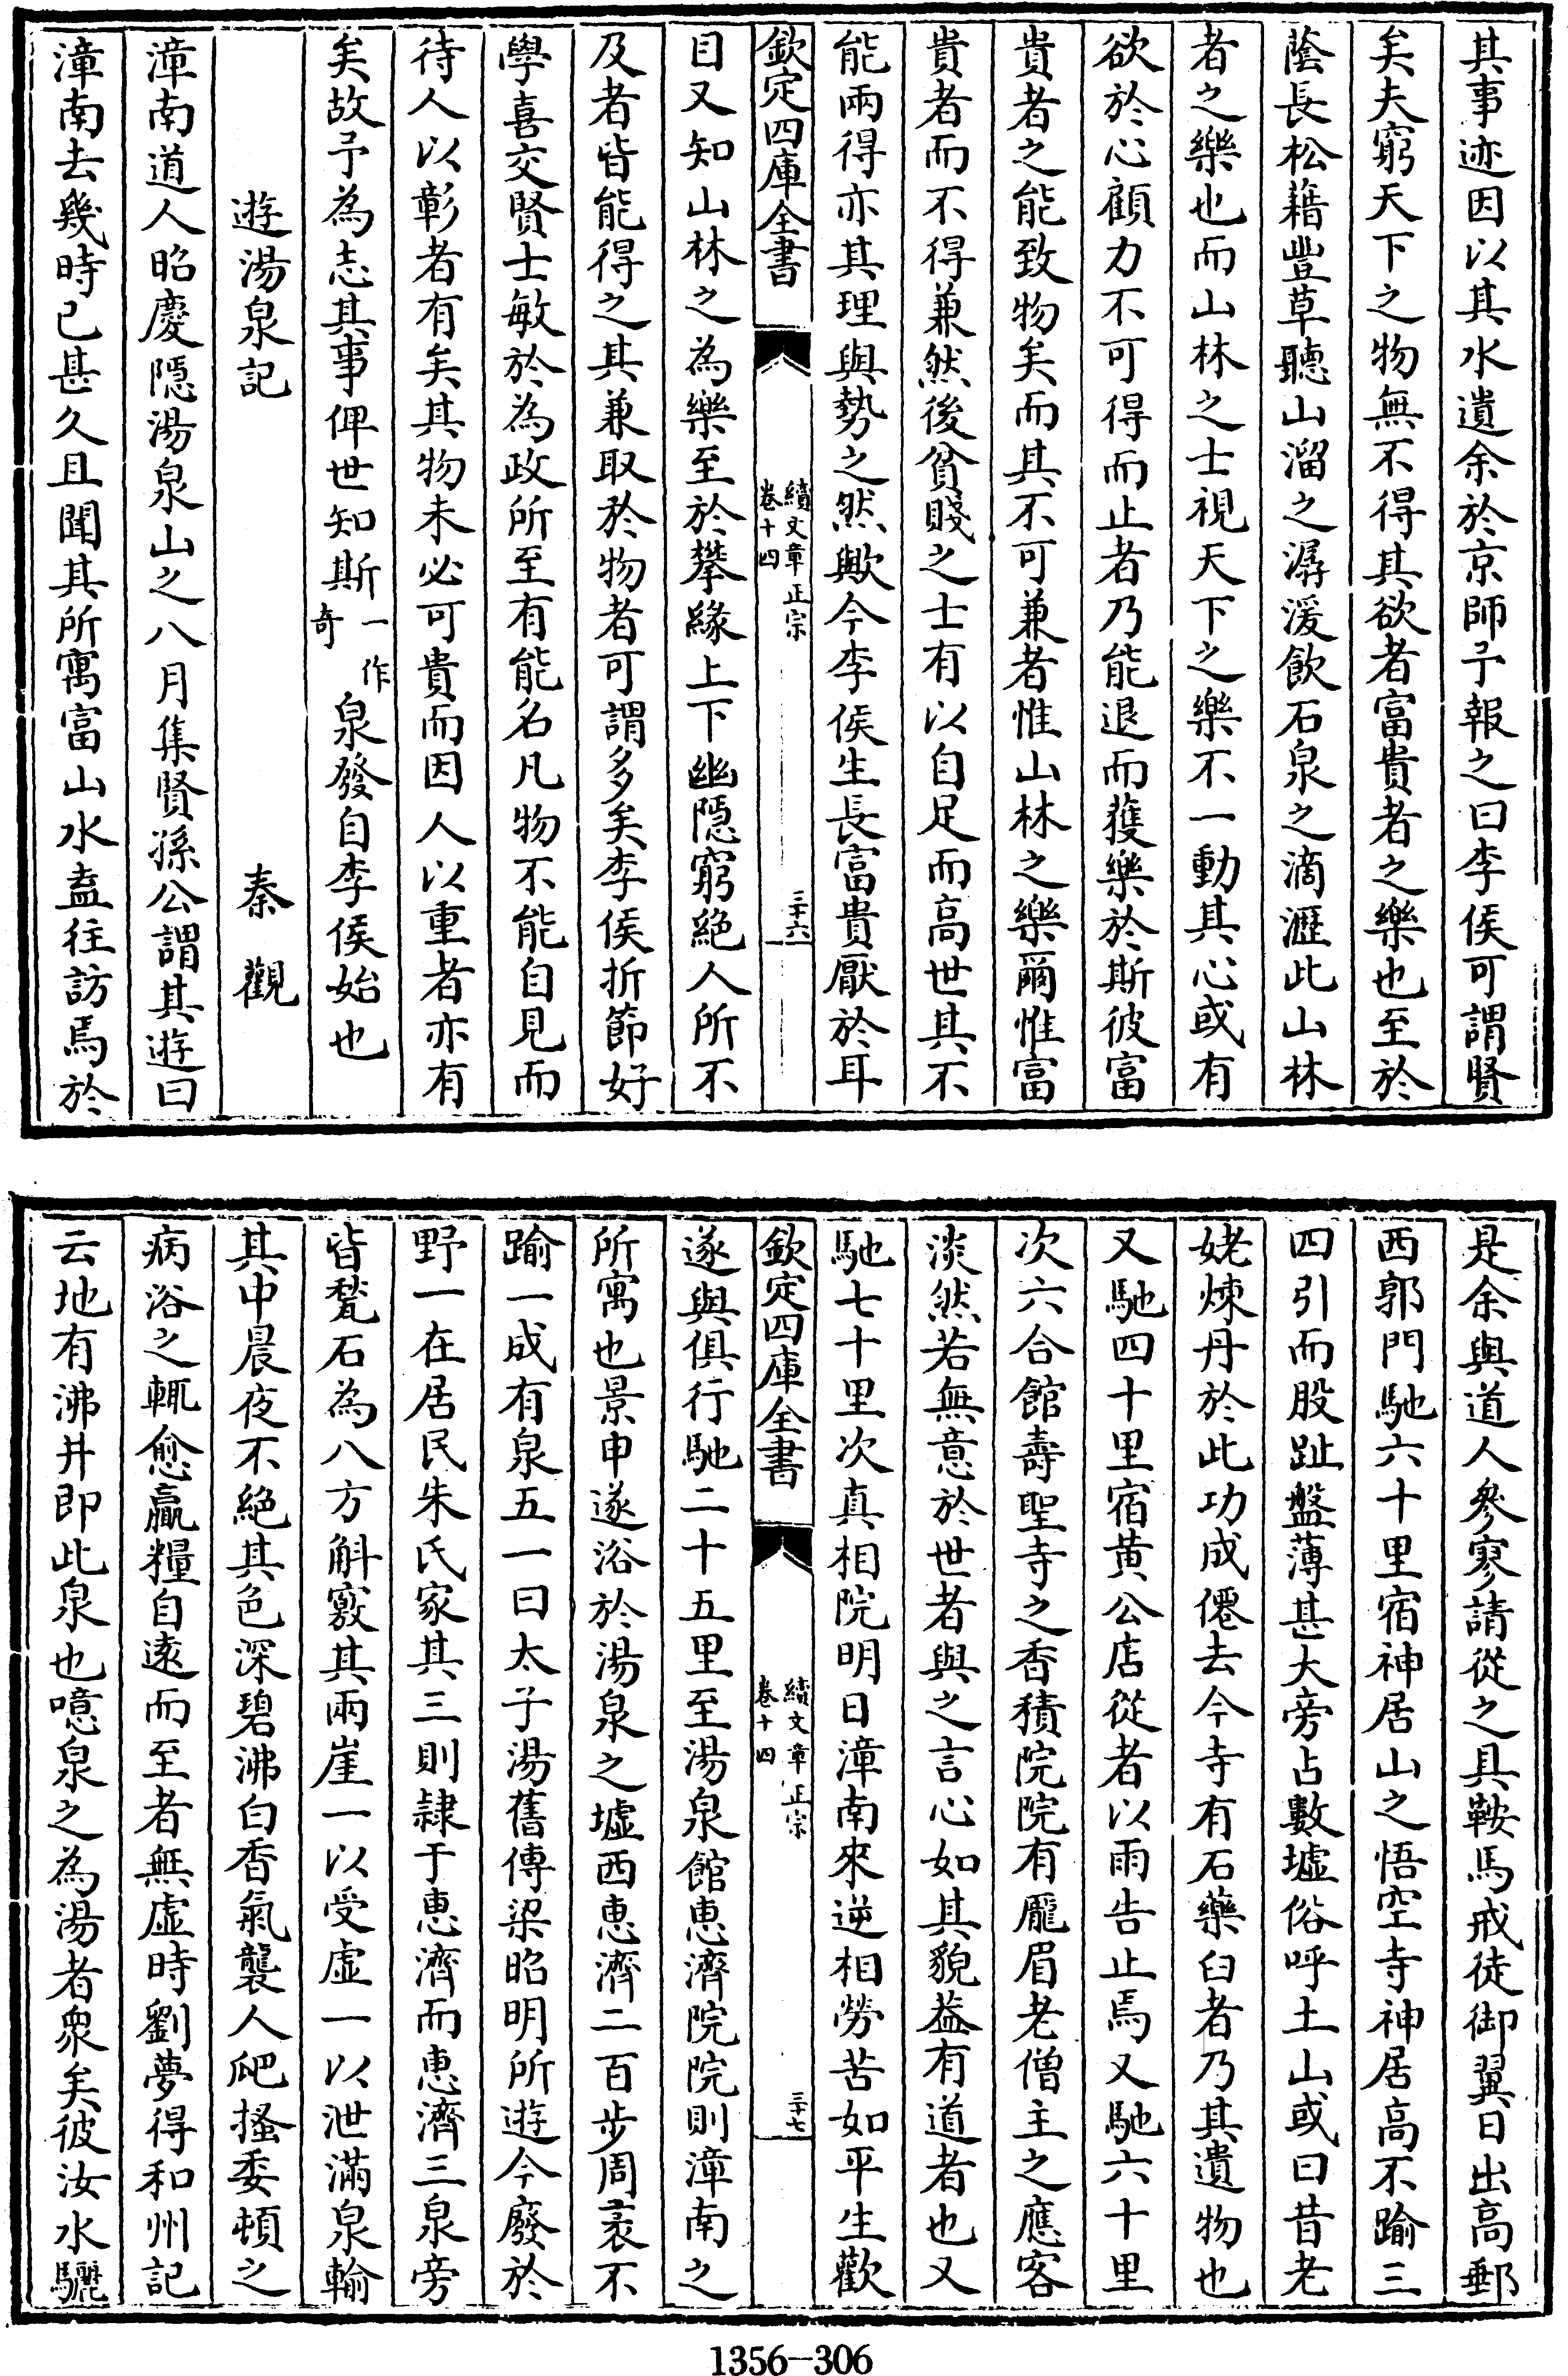 其事迹因以其水遺余於京師予報之曰李侯可謂賢
矣夫窮天下之物無不得其欲者富貴者之樂也至於
蔭長松藉豐草聽山溜之潺湲飲石泉之滴瀝此山林
者之樂也而山林之士視天下之樂不一動其心或有
欲於心顧力不可得而止者乃能退而獲樂於斯彼富
貴者之能致物矣而其不可兼者惟山林之樂爾惟富
貴者而不得兼然後貧賤之士有以自足而高世其不
能兩得亦其理與勢之然歟今李侯生長富貴厭於耳
欽定四庫全書
續文章正宗
卷十四
三十六
目又知山林之為樂至於攀緣上下幽隱窮絕人所不
及者皆能得之其兼取於物者可謂多矣李侯折節好
學喜交賢士敏於為政所至有能名凡物不能自見而
待人以彰者有矣其物未必可貴而因人以重者亦有
矣故予為志其事俾世知斯一作奇泉發自李侯始也
遊湯泉記　秦觀
漳南道人昭慶隱湯泉山之八月集賢孫公謂其遊曰
漳南去幾時已甚久且聞其所寓富山水盍往訪焉於
是余與道人參寥請從之具鞍馬戒徒御翼日出高郵
西郭門馳六十里宿神居山之悟空寺神居高不踰三
四引而股趾盤薄甚大旁占數墟俗呼土山或曰昔老
姥煉丹於此功成僊去今寺有石藥臼者乃其遺物也
又馳四十里宿黄公店從者以雨告止焉又馳六十里
次六合館壽聖寺之香積院院有龎眉老僧主之應客
淡然若無意於世者與之言心如其貌益有道者也又
馳七十里次真相院明日漳南來逆相勞苦如平生歡
欽定四庫全書
續文章正宗
卷十四
三十七
遂與俱行馳二十五里至湯泉館惠濟院院則漳南之
所寓也景申遂浴於湯泉之墟西惠濟二百步周袤不
踰一成有泉五一曰太子湯舊傳梁昭明所遊今廢於
野一在居民朱氏家其三則隷于惠濟而惠濟三泉旁
皆甃石為八方斛竅其兩崖一以受虛一以泄滿泉輸
其中晨夜不絕其色深碧沸白香氣襲人爬搔委頓之
病浴之輒愈贏糧自遠而至者無虛時劉夢得和州記
云地有沸井即此泉也噫泉之為湯者衆矣彼汝水驪
1356-306